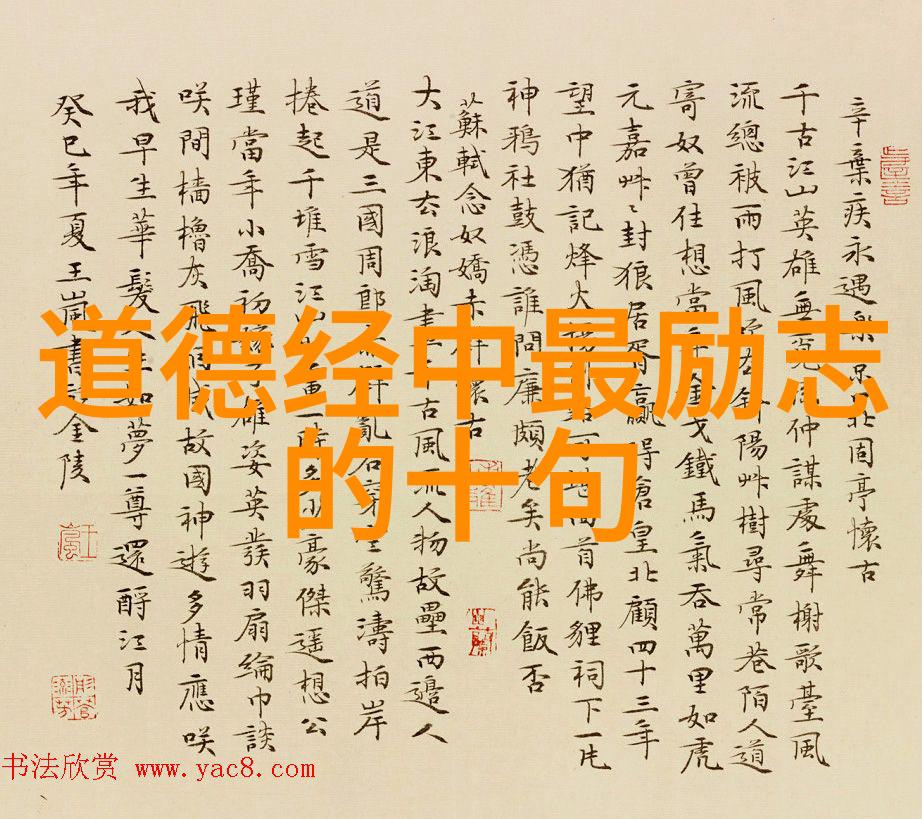 道德经中最励志
的十句
辛棄疾永遇樂京北固亭懷古
千古江山英雄無覓仲謀處舞榭歌臺風
流總被雨打風斜陽艸樹尋常巷陌人道
寄奴曾住想當年金戈鐵馬氣吞萬里如虎
元嘉艸〻封狼居胥贏得倉皇北顧四十三年
望中猶記烽火可堪回首佛貍祠下一片
神鴉社鼓憑誰問廉頗老矣尚能飯否
蘇軾念奴嬌赤壁懷古
大江東去浪淘盡千古風流人物故壘西邊人
道是三國周郎赤壁亂石穿空驚濤拍岸
捲起千堆雪江山如畫一時多少豪傑遙想公
瑾當年小喬初嫁了雄姿英發羽扇綸巾談
咲間檣櫓灰飛故國神遊多情應咲
我早生華髮人生如夢一尊還酹江月
癸巳年夏王嵐書於金陵
书法欣赏 www.yac8.com